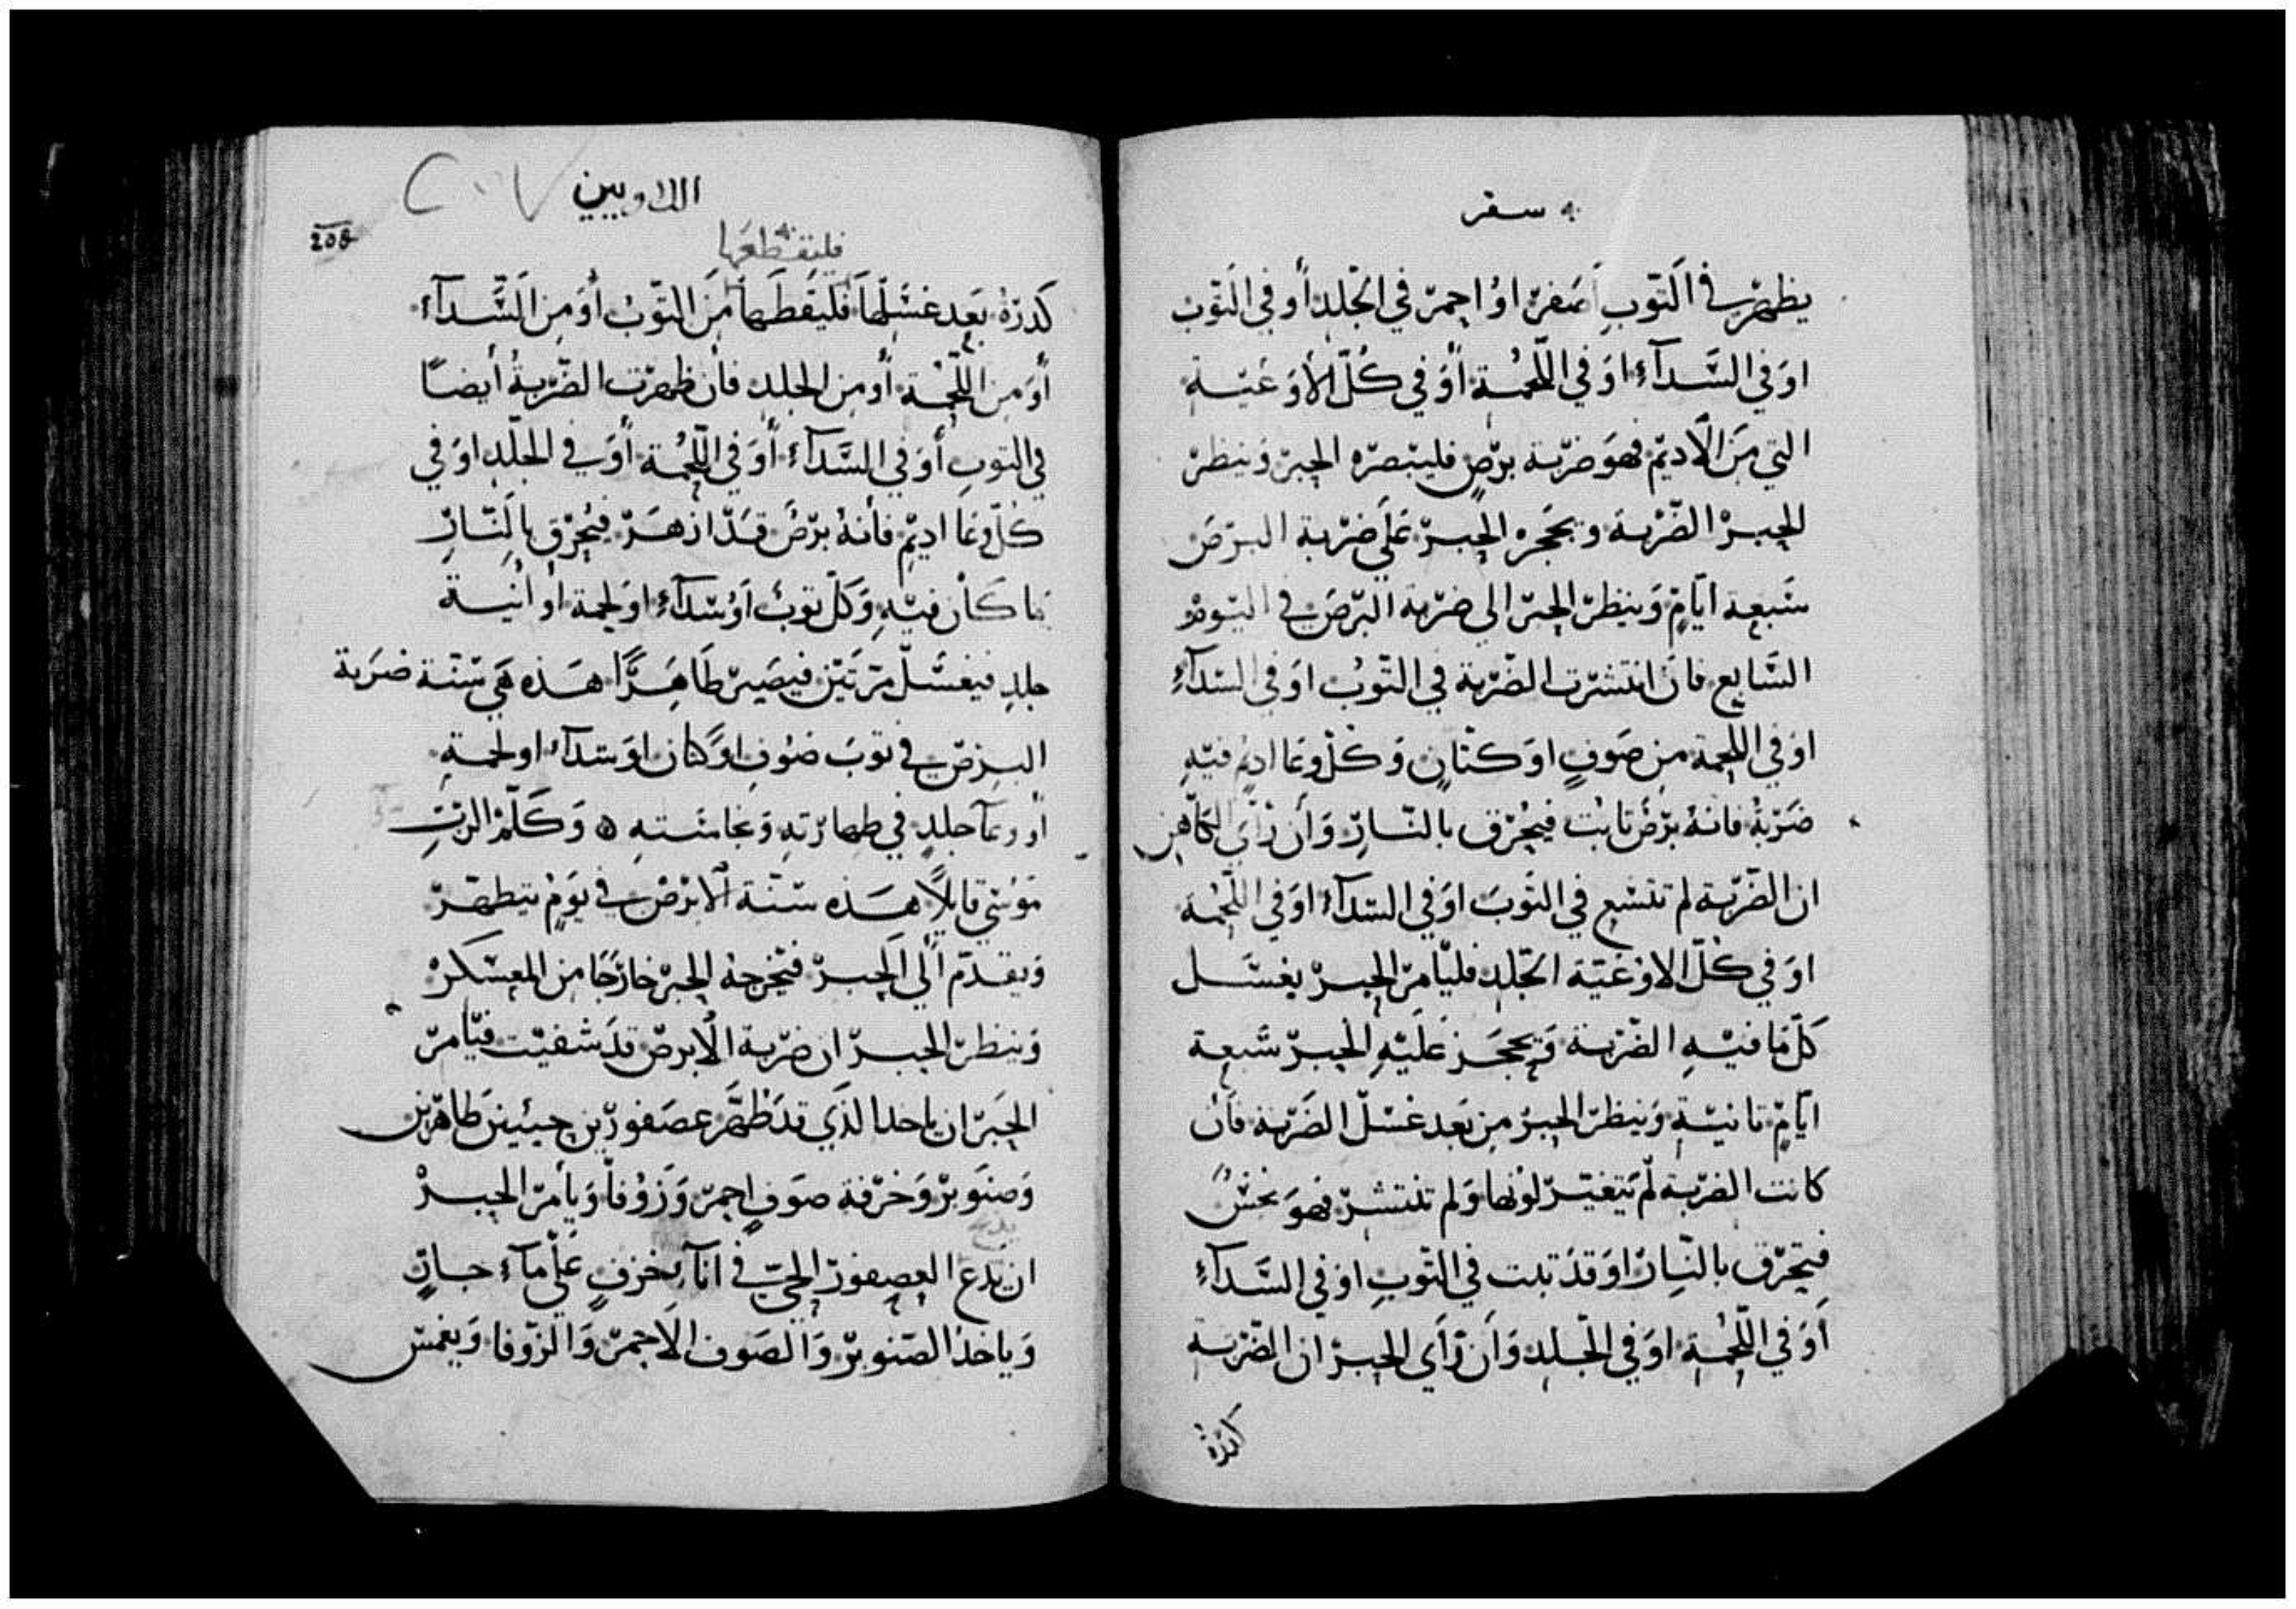 سفر
يظهر في الثوب اصفر او احمر في الجلد أو في الثوب
او في السداء او في اللحمة أو في كل الأوعية
التي من الاديم فهو ضربة برص فليبصره الحبر وينظر
الحبر الضربة ويحجره الحبر على ضربة البرص
سبعة ايام وينظر الحبر الى ضربة البرص في اليوم
السابع فان انتشرت الضربة في الثوب او في السداء
او في اللحمة من صوف او كتان وكل وعا اديم فيه
ضربة فانه برص ثابت فيحرق بالنار وأن رأى الكاهن
ان الضربة لم تتسع في الثوب او في السداء او في اللحمة
او في كل الاوعية الجلد فليأمر الحبر يغسل
كل ما فيه الضربة ويحجز عليه الحبر سبعة
ايام ثانية وينظر الحبر من بعد غسل الضربة فان
كانت الضربة لم يتغير لونها ولم تنتشر فهو نجس
فيحرق بالنار او قد ثبت في الثوب او في السداء
أو في اللحمة او في الجلد وأن رأى الحبر ان الضربة
كدرة
اللاويين
٢٠٧
208
فليقطعها
كدرة بعد غسلها فليقطعها من الثوب أو من السداء
أو من اللحمة أو من الجلد فأن ظهرت الضربة أيضًا
في الثوب أو في السداء أو في اللحمة أو في الجلد او في
كل وعا اديم فأنه برص قد ازهر فيحرق بالنار
ما كان فيه وكل ثوب او سداء او لحمة او أنية
جلد فيغسل مرتين فيصير طاهرًا هذه هي سنة ضربة
البرص في ثوب صوف او كتان او سداء او لحمة
أو وعآ جلد في طهارته ونجاسته ه وكلم الرب
موسى قايلًا هذه سنة الابرص في يوم يتطهر
ويقدم ألى الحبر فيخرجه الحبر خارجًا من المعسكر
وينظر الحبر ان ضربة الأبرص قد شفيت فيأمر
الحبر ان ياخد الذي قد ظهر عصفورين حيين طاهرين
وصنوبر وخرقة صوف احمر وزوفا ويأمر الحبر
ان يدع العصفور الحي في انآ خزف على مآء جار
وياخذ الصنوبر والصوف الاحمر والزوفا ويغمس